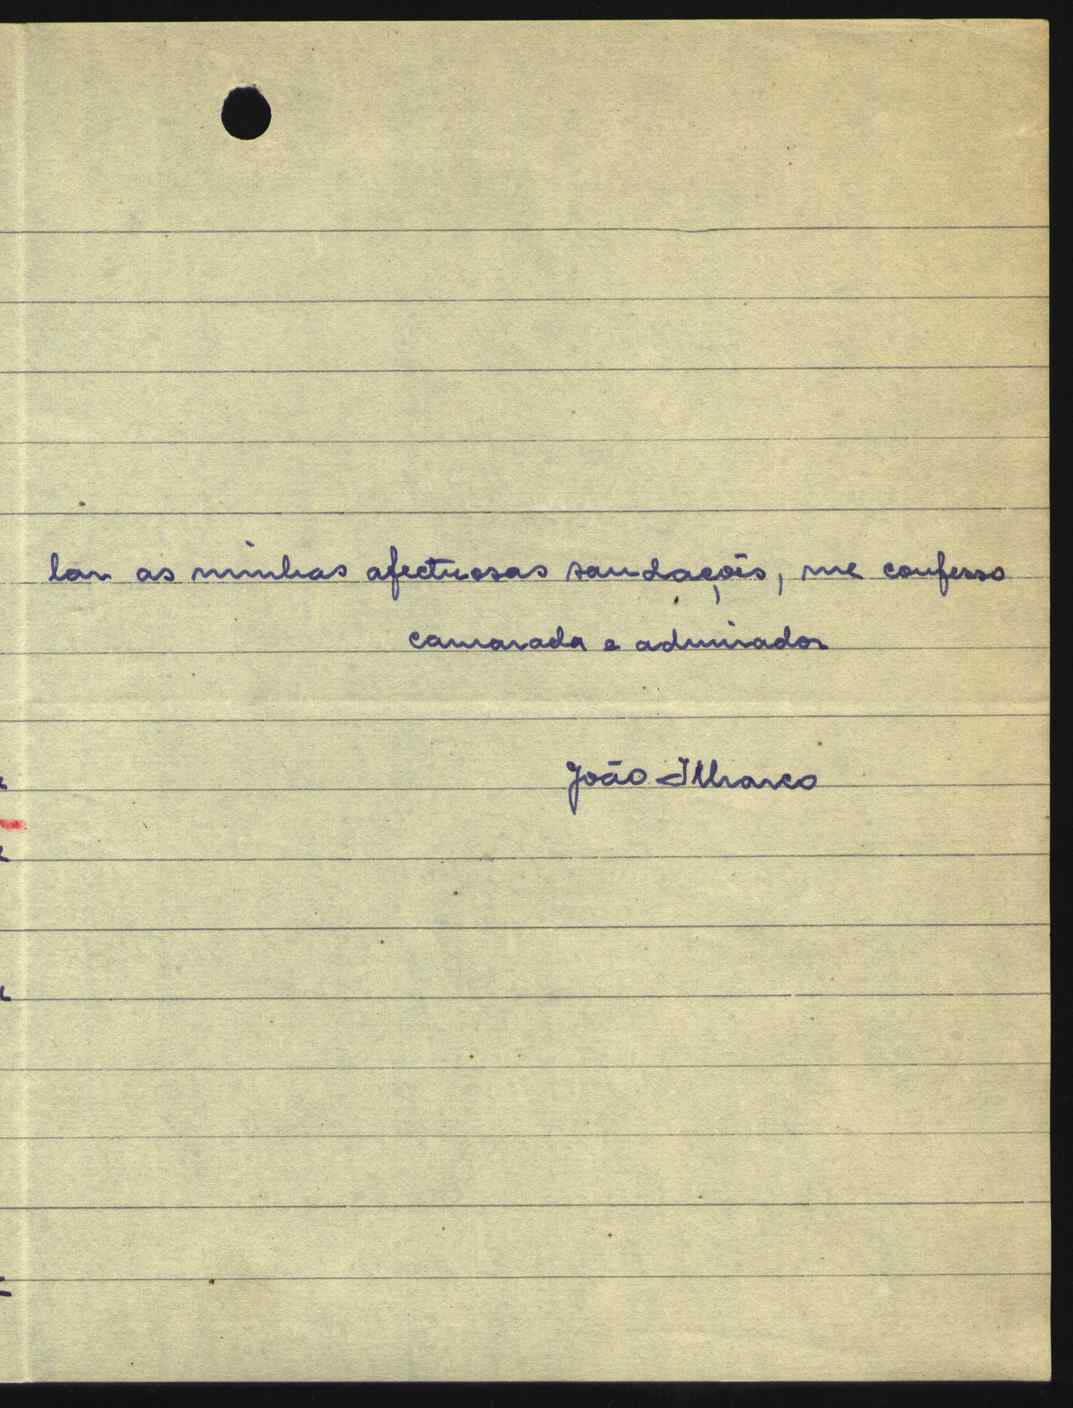 lar as minhas afectuosas saudações, me confesso
camarada e admirador
João Ilharco